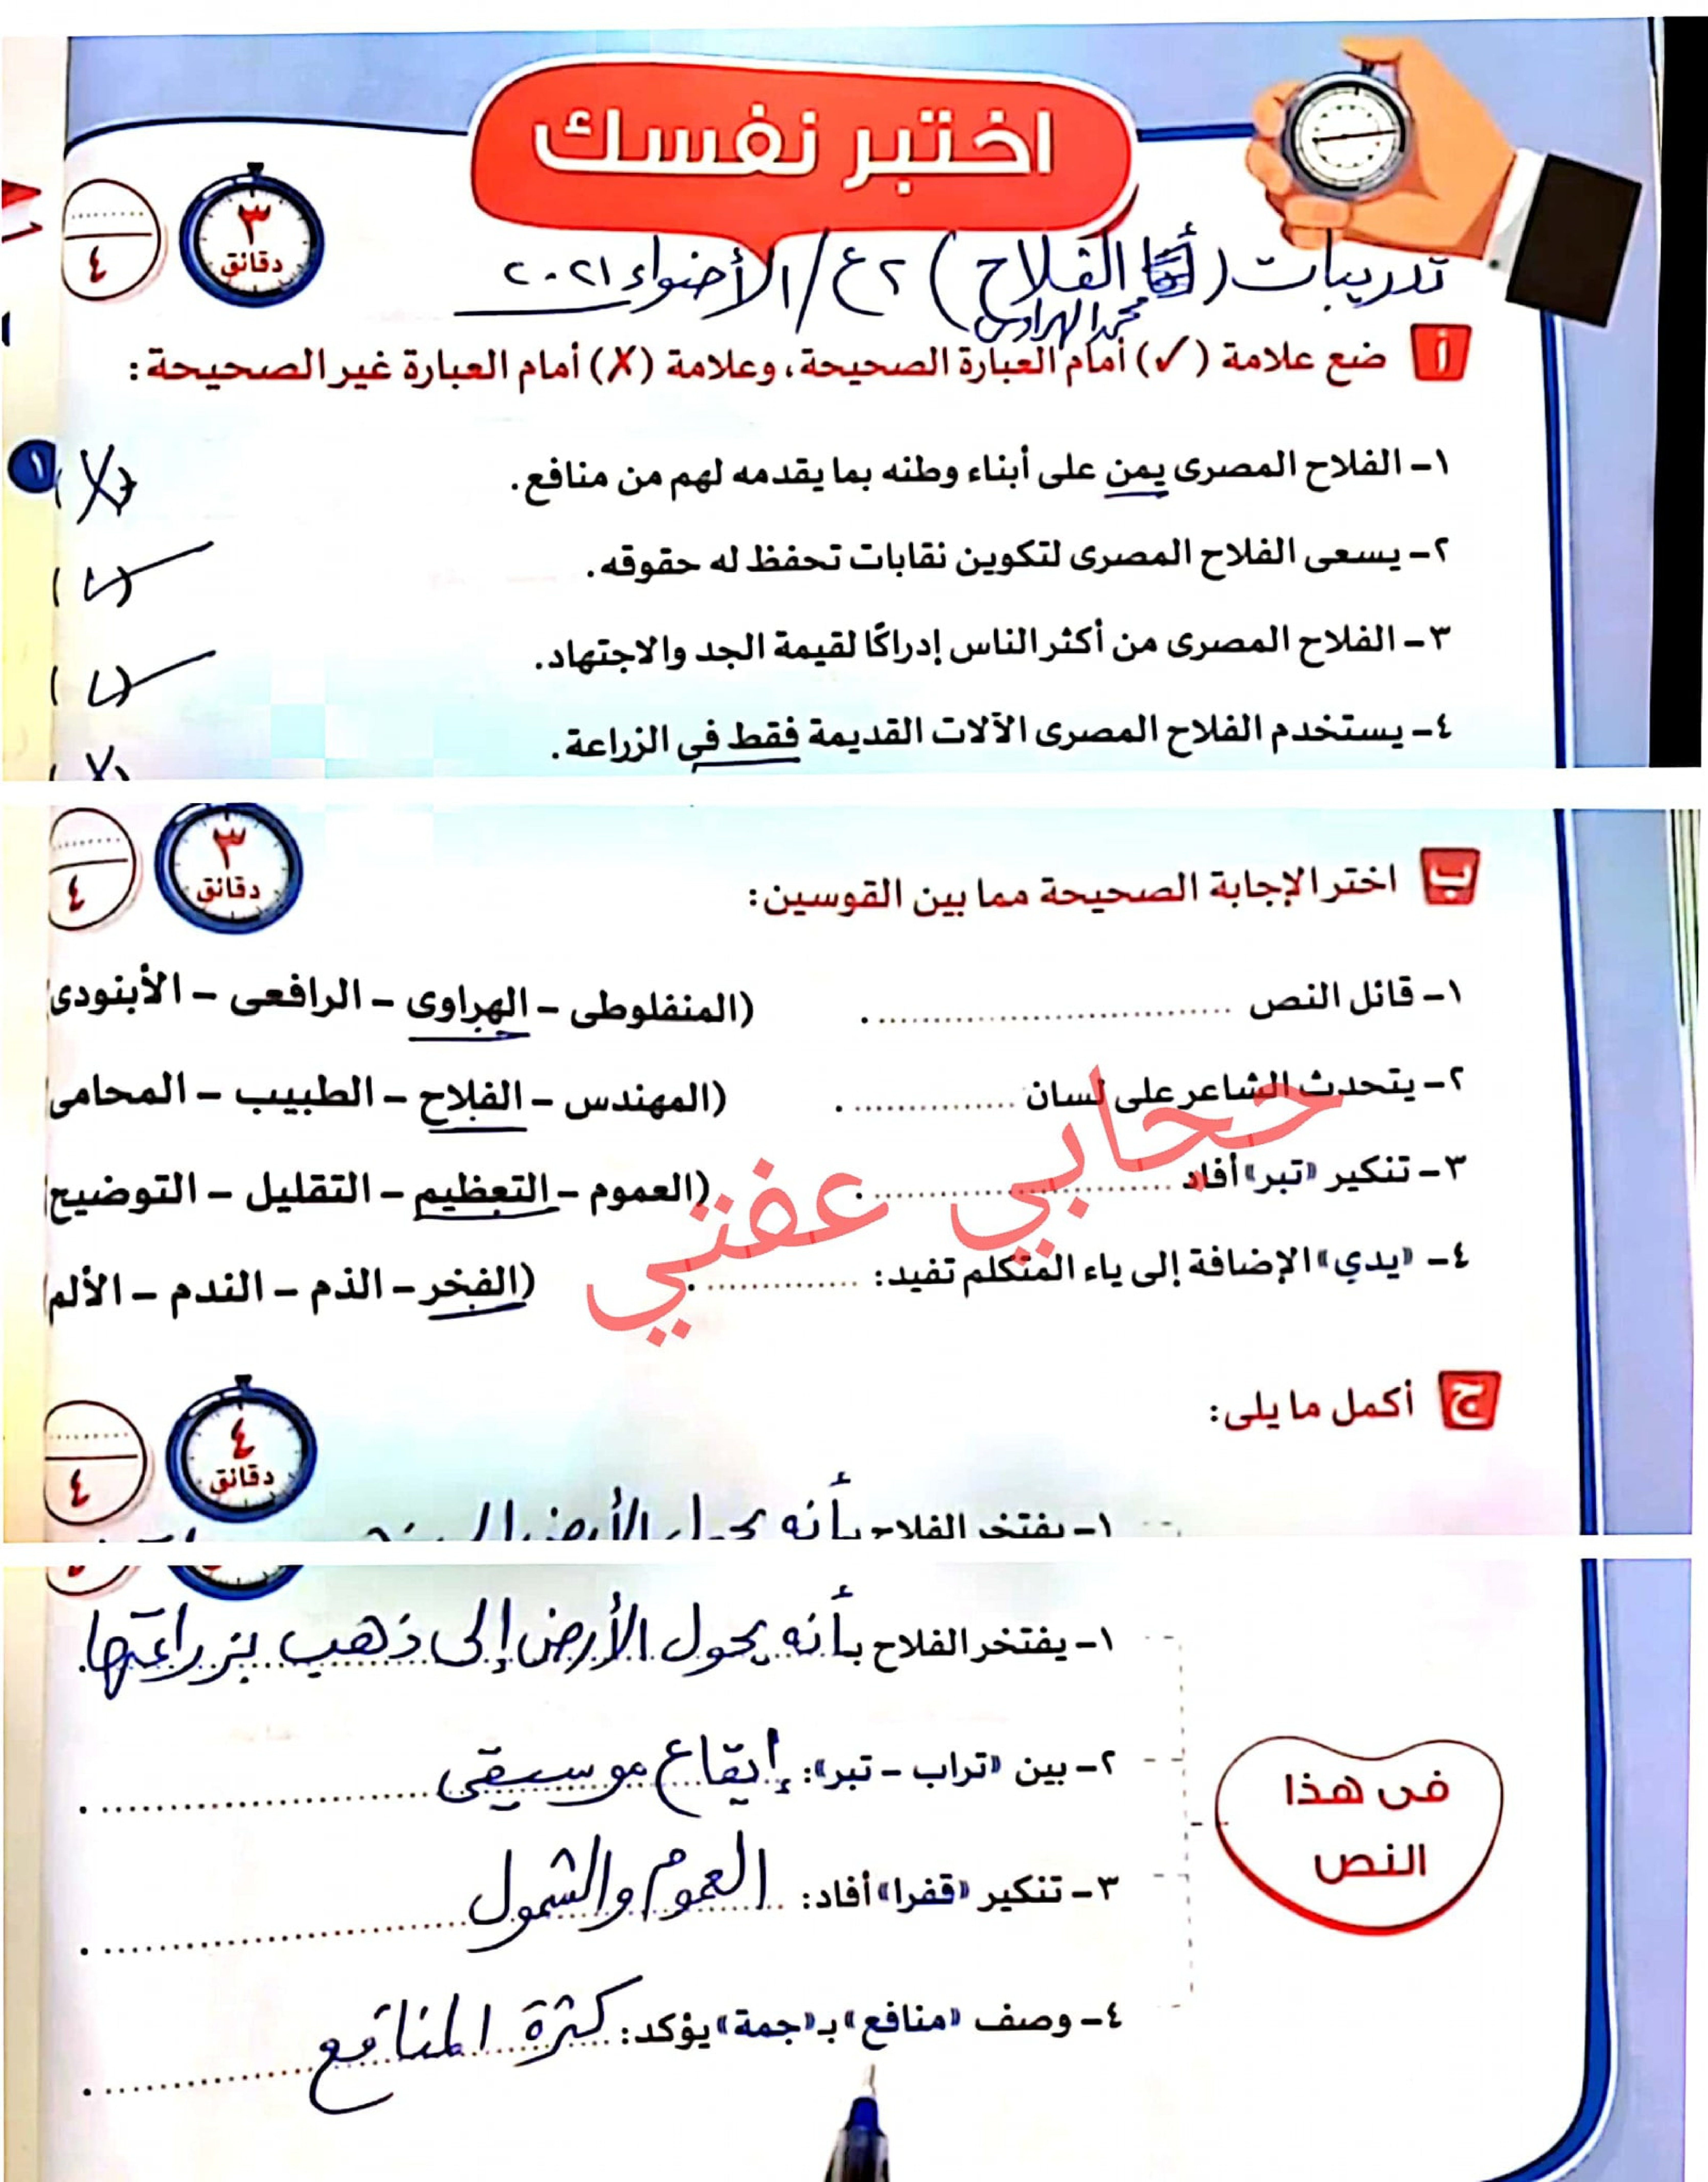 اختبر نفسك
٣
دقائق
٤
تدريبات (الفلاح) ٢ع/ الأضواء ٢٠٢١
محمد الهراوى
أ ضع علامة (✓) أمام العبارة الصحيحة، وعلامة (✗) أمام العبارة غير الصحيحة:
١- الفلاح المصرى يمن على أبناء وطنه بما يقدمه لهم من منافع. (✗)
١
٢- يسعى الفلاح المصرى لتكوين نقابات تحفظ له حقوقه. (✓)
٣- الفلاح المصرى من أكثر الناس إدراكًا لقيمة الجد والاجتهاد. (✓)
٤- يستخدم الفلاح المصرى الآلات القديمة فقط فى الزراعة. (✗)
٣
دقائق
٤
ب اختر الإجابة الصحيحة مما بين القوسين:
١- قائل النص .............................. . (المنفلوطى - الهراوى - الرافعى - الأبنودى
٢- يتحدث الشاعر على لسان ............... . (المهندس - الفلاح - الطبيب - المحامى
٣- تنكير «تبر» أفاد .............................. . (العموم - التعظيم - التقليل - التوضيح
٤- «يدي» الإضافة إلى ياء المتكلم تفيد: ............... . (الفخر - الذم - الندم - الألم
حجابي عفتي
ج أكمل ما يلى:
٤
دقائق
٤
١- يفتخر الفلاح بأنه يحول الأرض إلى
١- يفتخر الفلاح بأنه يحول الأرض إلى ذهب بزراعتها.
٢- بين «تراب - تبر»: إيقاع موسيقى .
فى هذا
النص
٣- تنكير «قفرا» أفاد: العموم والشمول .
٤- وصف «منافع» بـ«جمة» يؤكد: كثرة المنافع .